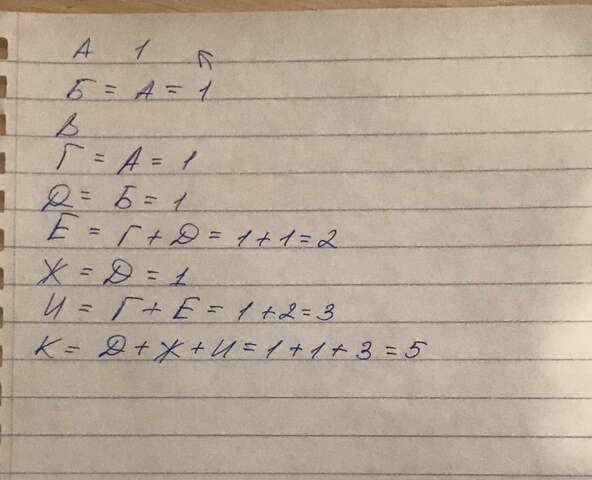 А 1
Б = А = 1
В
Г = А = 1
Д = Б = 1
Е = Г + Д = 1 + 1 = 2
Ж = Д = 1
И = Г + Е = 1 + 2 = 3
К = Д + Ж + И = 1 + 1 + 3 = 5